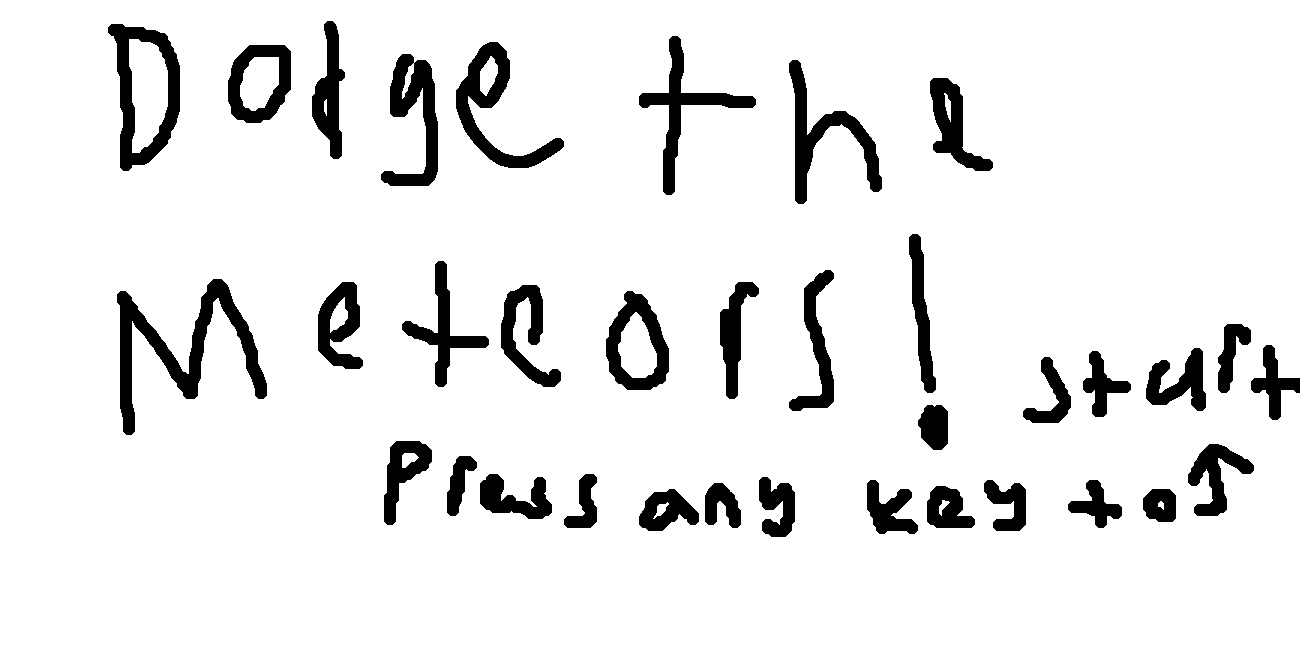 Dodge the
Meteors!
Press any key to ↑
start